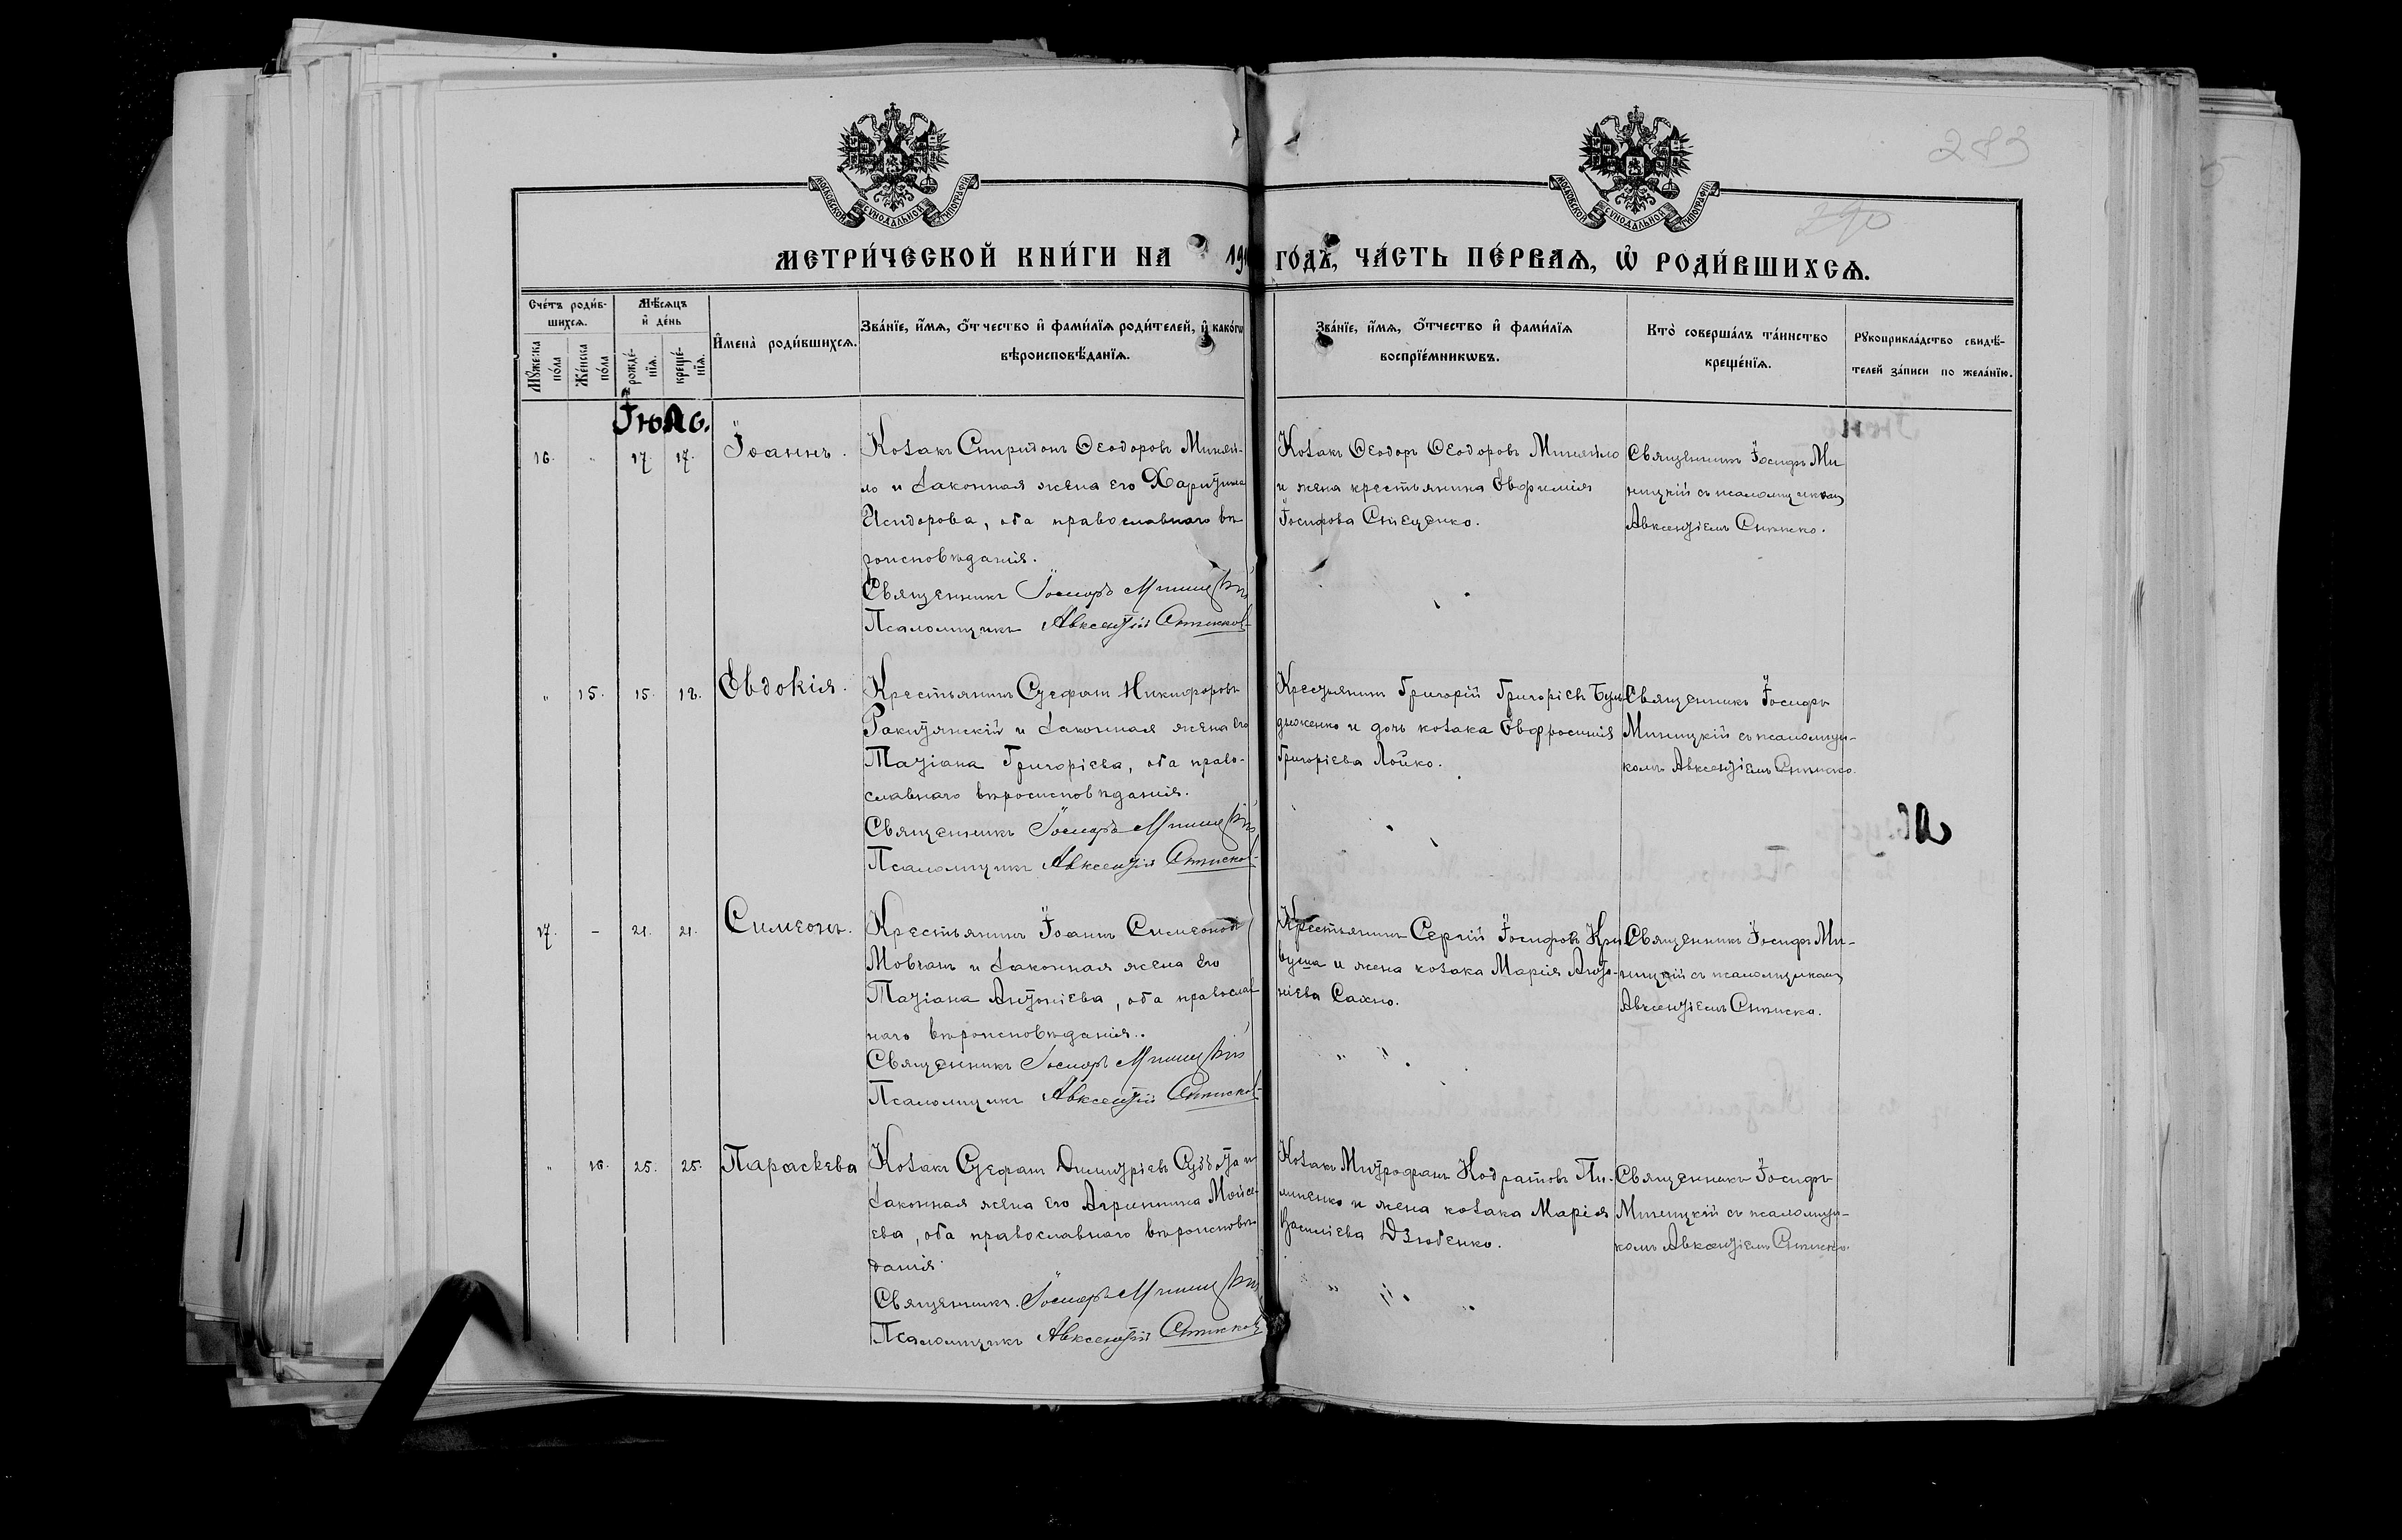 МОСКОВСКОЙ СѴНОДАЛЬНОЙ ТИПОГРАФІИ
МОСКОВСКОЙ СѴНОДАЛЬНОЙ ТИПОГРАФІИ
283
290
МЕТРИ́ЧЕСКОЙ КНИ́ГИ НА 19
ГО́ДЪ, ЧА́СТЬ ПЕ́РВАѦ, Ѡ҆ РОДИ́ВШИХСѦ.
Сче́тъ роди́в-
шихсѧ.
Мꙋ́жеска
по́ла
Же́нска
по́ла
Мѣ́сѧцъ
и҆ де́нь
рожде́-
нїѧ.
креще́-
нїѧ.
И҆мена̀ роди́вшихсѧ.
Зва́нїе, и҆́мѧ, о҆́тчество и҆ фами́лїѧ роди́телей, и҆ како́гѡ
вѣроисповѣ́данїѧ.
Зва́нїе, и҆́мѧ, о҆́тчество и҆ фами́лїѧ
воспрїе́мникѡвъ.
Кто̀ соверша́лъ та́инство
креще́нїѧ.
Рꙋкоприкла́дство свидѣ́-
телей за́писи по жела́нїю.
Іюль.
16. " 17. 17. Іоаннъ.
Козакъ Спиридонъ Ѳеодоровъ Миняй-
ло и законная жена его Харитина
Исидорова, оба православнаго вѣ
роисповѣданія.
Священникъ Іосифъ Миницкій
Псаломщикъ Авксентій
Козакъ Ѳеодоръ Ѳеодоровъ Миняйло
и жена крестьянина Евфимія
Іосифова
Священникъ Іосифъ Ми
ницкій съ псаломщикомъ
Авксентіемъ
" 15. 15. 18. Евдокія.
Крестьянинъ Стефанъ Никифоровъ
Ракитянскій и законная жена его
Татіана Григоріева, оба право-
славнаго вѣроисповѣданія.
Священникъ Іосифъ Миницкій
Псаломщикъ Авксентій
Крестьянинъ Григорій Григоріевъ
и дочь козака Евфросинія
Григоріева Лойко.
Священникъ Іосифъ
Миницкій съ псаломщи-
комъ Авксентіемъ
17. – 21. 21. Симеонъ.
Крестьянинъ Іоаннъ Симеоновъ
Мовчанъ и законная жена его
Татіана Антоніева, оба православ
наго вѣроисповѣданія.
Священникъ Іосифъ Миницкій
Псаломщикъ Авксентій
Крестьянинъ Сергій Іосифовъ Кри
вуша и жена козака Марія Анто-
ніева Сахно.
Священникъ Іосифъ Ми-
ницкій съ псаломщикомъ
Авксентіемъ
" 16. 25. 25. Параскева
Козакъ Стефанъ Димитріевъ Суббота и
законная жена его Агриппина Мойсе-
ева, оба православнаго вѣроисповѣ
данія.
Священникъ Іосифъ Миницкій
Псаломщикъ Авксентій
Козакъ Митрофанъ Кодратовъ Пи-
липенко и жена козака Марія
Василіева Дзюбенко.
Священникъ Іосифъ
Миницкій съ псаломщи-
комъ Авксентіемъ